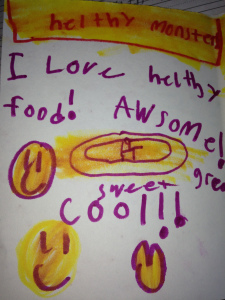 helthy monster
I Love helthy
food! AWsome!
sweet
COOl!!!